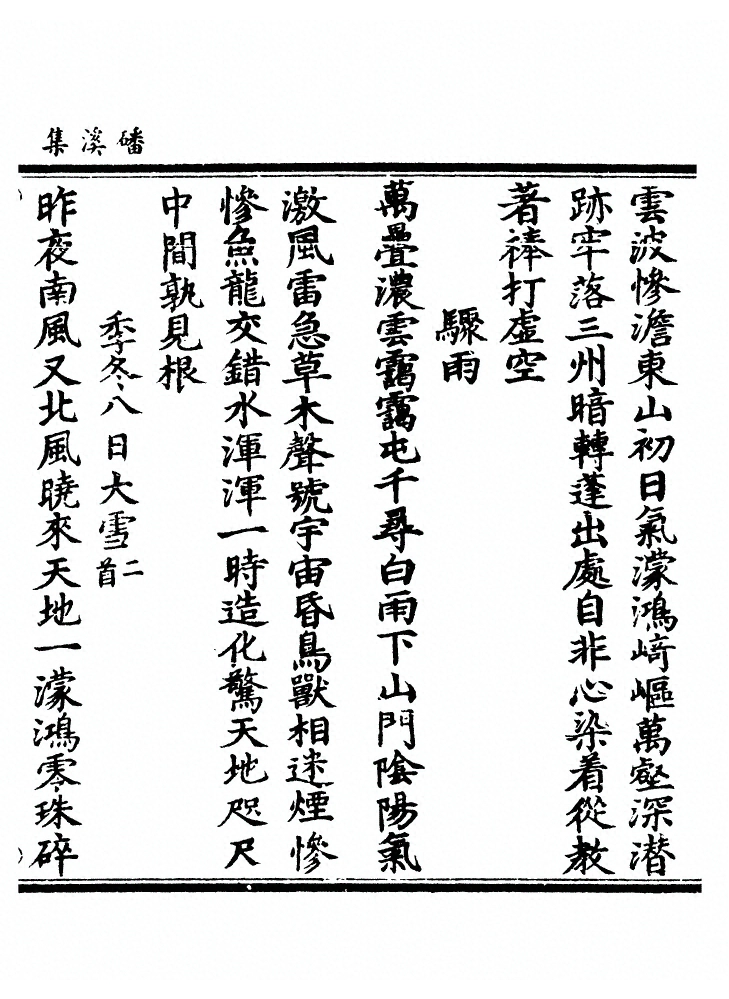 磻溪集
雲波慘澹東山初日氣濛鴻﨑嶇萬壑深潜
跡牢落三州暗轉蓬出處自非心染着從教
著棒打虚空
驟雨
萬疊濃雲靄靄屯千尋白雨下山門陰陽氣
激風雷急草木聲號宇宙昏鳥獸相迷煙慘
慘魚龍交錯水渾渾一時造化驚天地咫尺
中間孰見根
季冬八日大雪二首
昨夜南風又北風曉來天地一濛鴻零珠碎